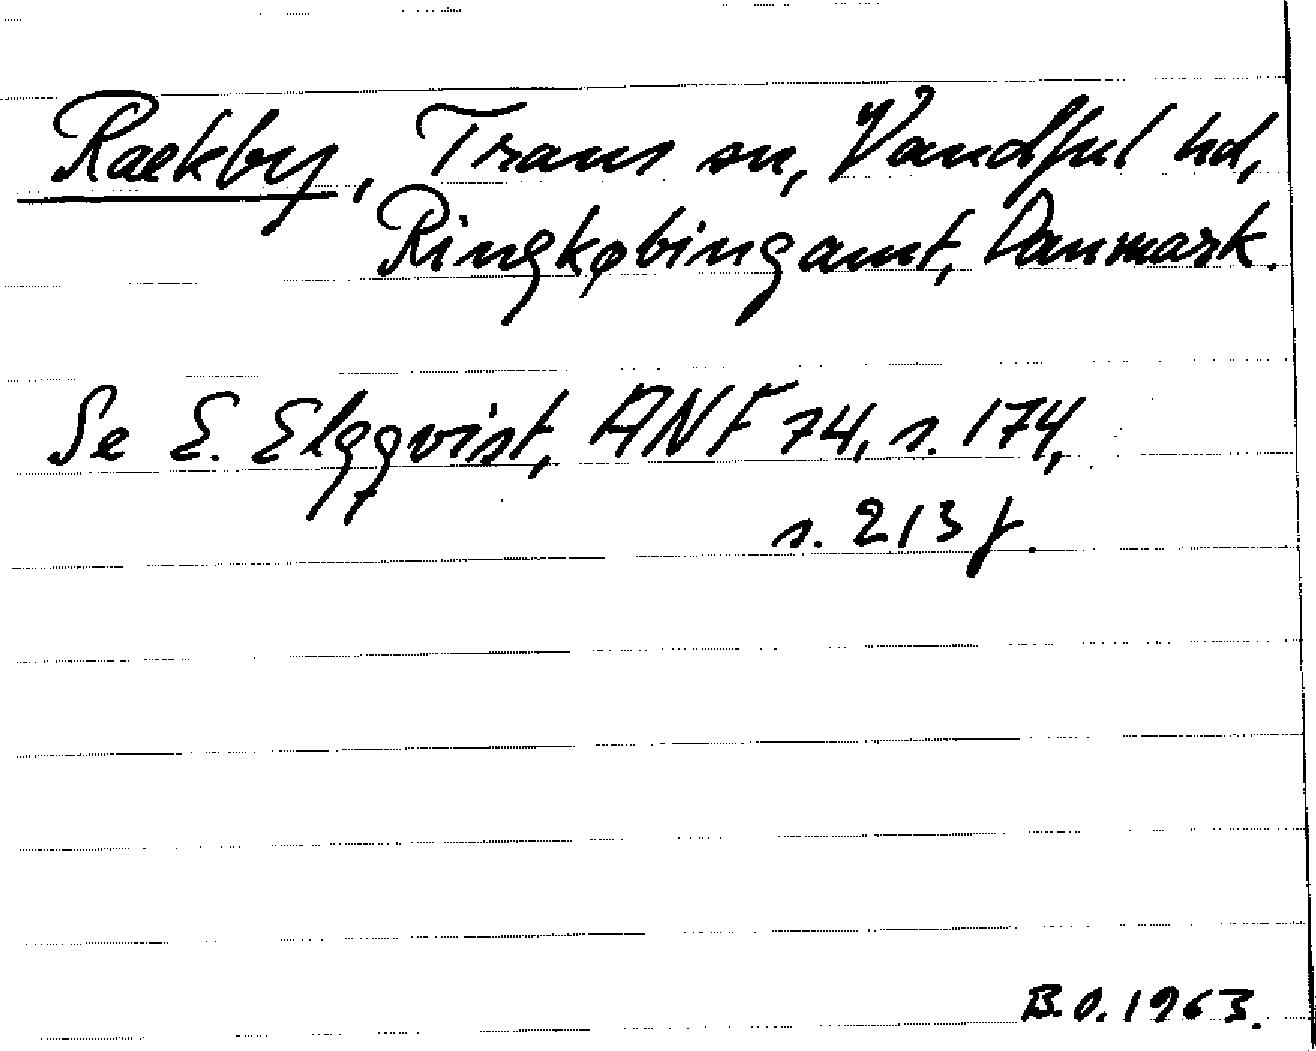 Raekby, Trans sn, Vandful hd,
Ringkøbing amt, Danmark.
Se E. Elgqvist, ANF 74, s. 174,
s. 213 f.
B.O. 1963.